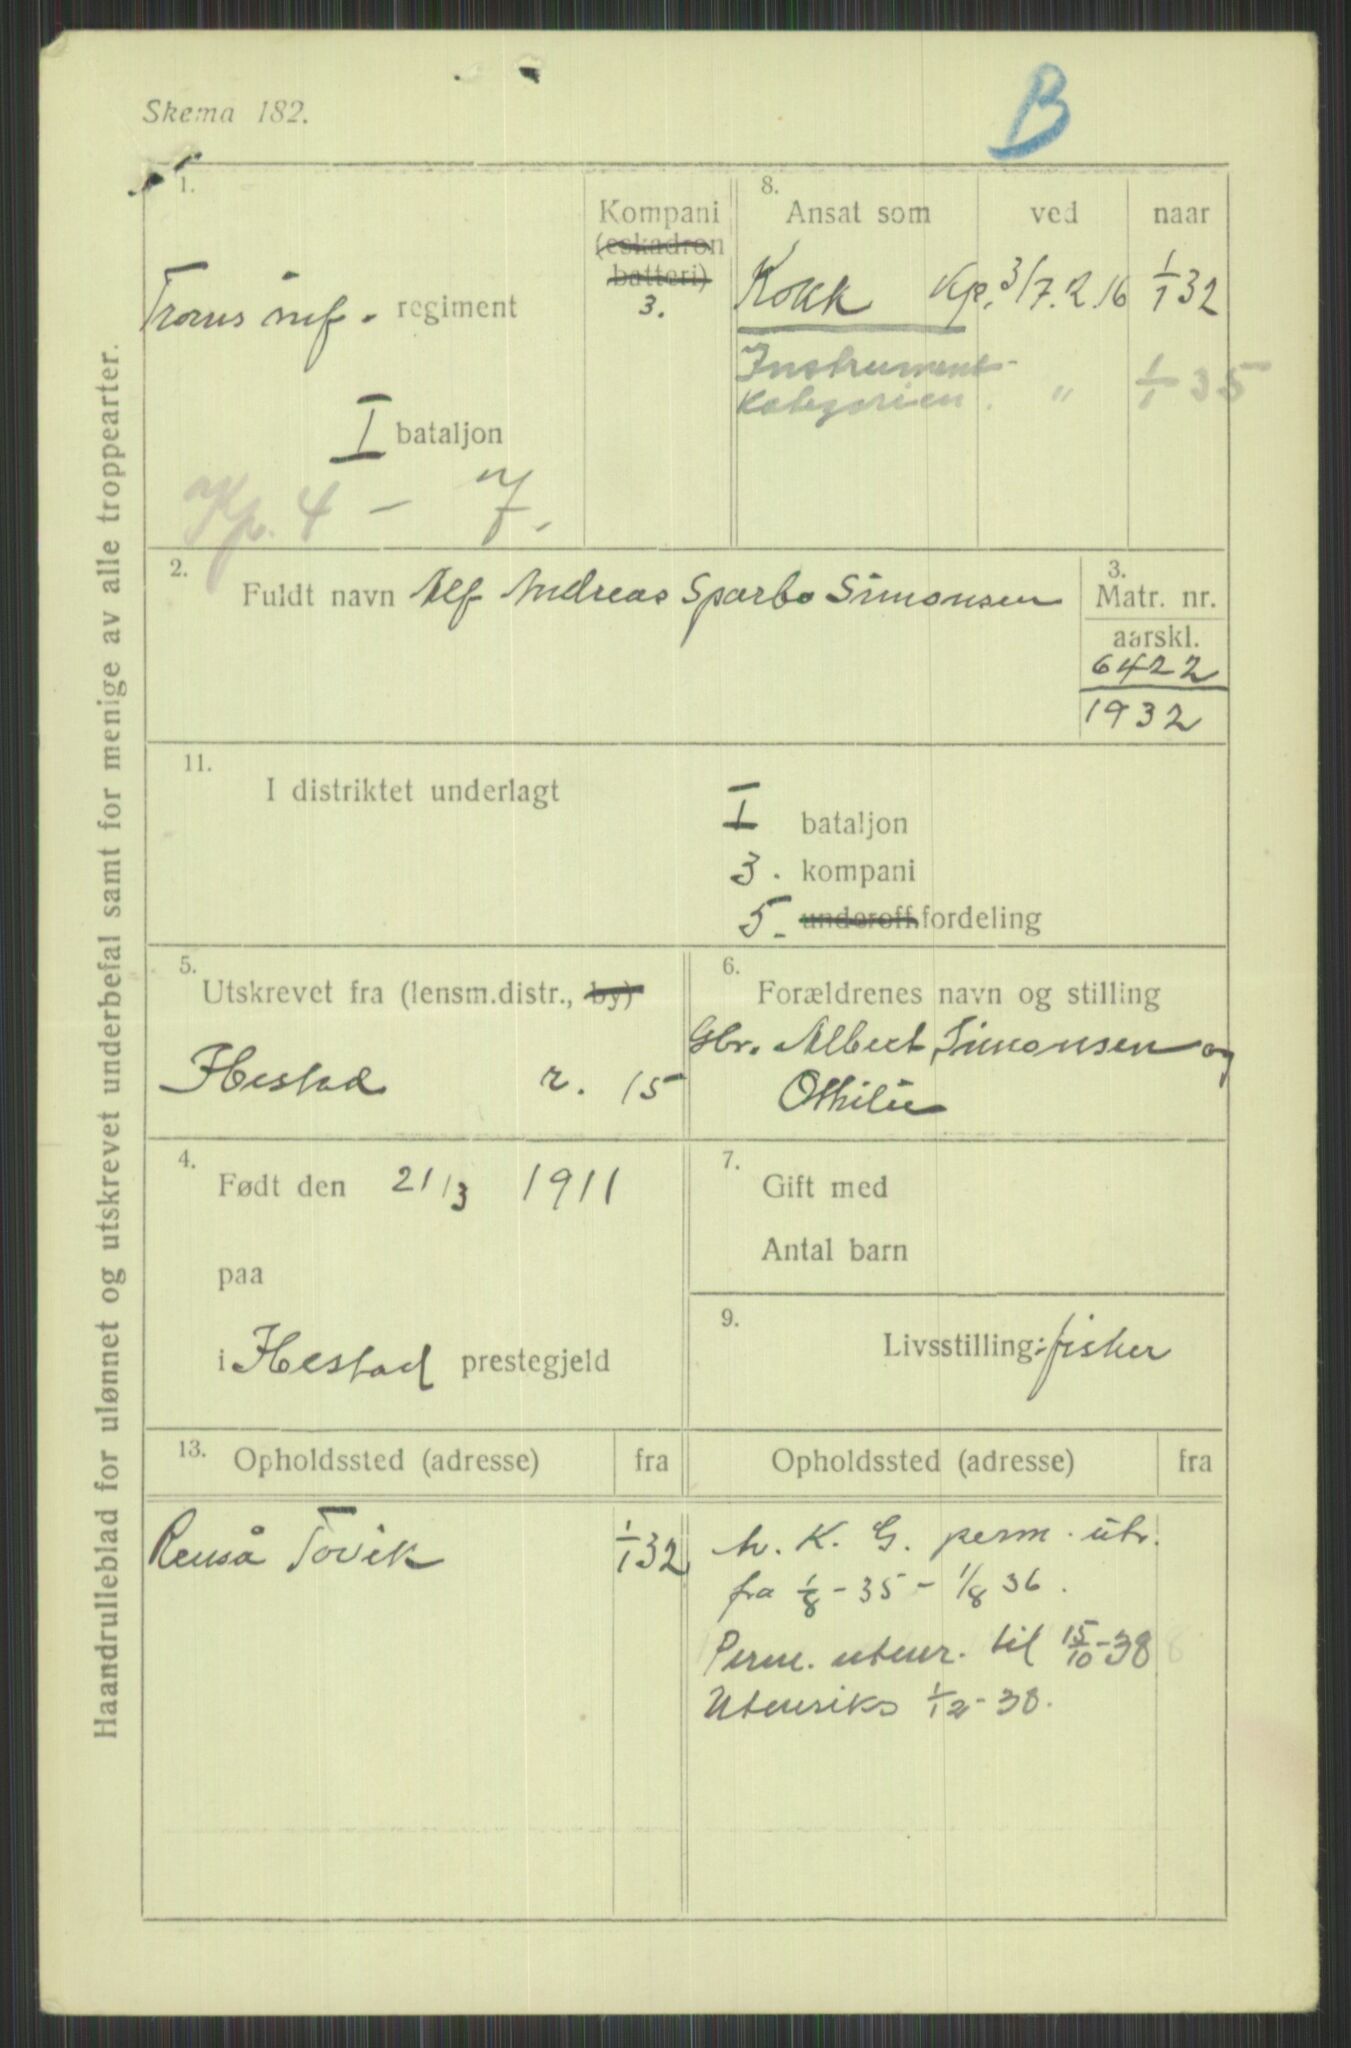 Skema 182.
B
Haandrulleblad for ulønnet og utskrevet underbefal samt for menige av alle troppearter.
1.
Troms inf. regiment
I bataljon
Kp. 4 - 7.
Kompani
(eskadron
batteri)
3.
8.
Ansat som ved naar
Kokk Kp. 3/7. R. 16 1/1 32
Instrument-
kategorien. " 1/1 35
2.
Fuldt navn Alf Andreas Sparbo Simonsen
3.
Matr. nr.
aarskl.
6422
1932
11.
I distriktet underlagt
I bataljon
3. kompani
5. underoff.fordeling
5.
Utskrevet fra (lensm.distr., by)
r. 15
6.
Forældrenes navn og stilling
Gbr. Albert Simonsen og
Othilie
4.
Født den 21/3 1911
paa
i prestegjeld
7.
Gift med
Antal barn
9.
Livsstilling: fisker
13.
Opholdssted (adresse) fra
Renså Tovik 1/1 32
Opholdssted (adresse) fra
K. G. perm. utr.
fra 1/8 - 35 - 1/8 36.
Perm. utenr. til 15/10-38
Utenriks 1/12-38.